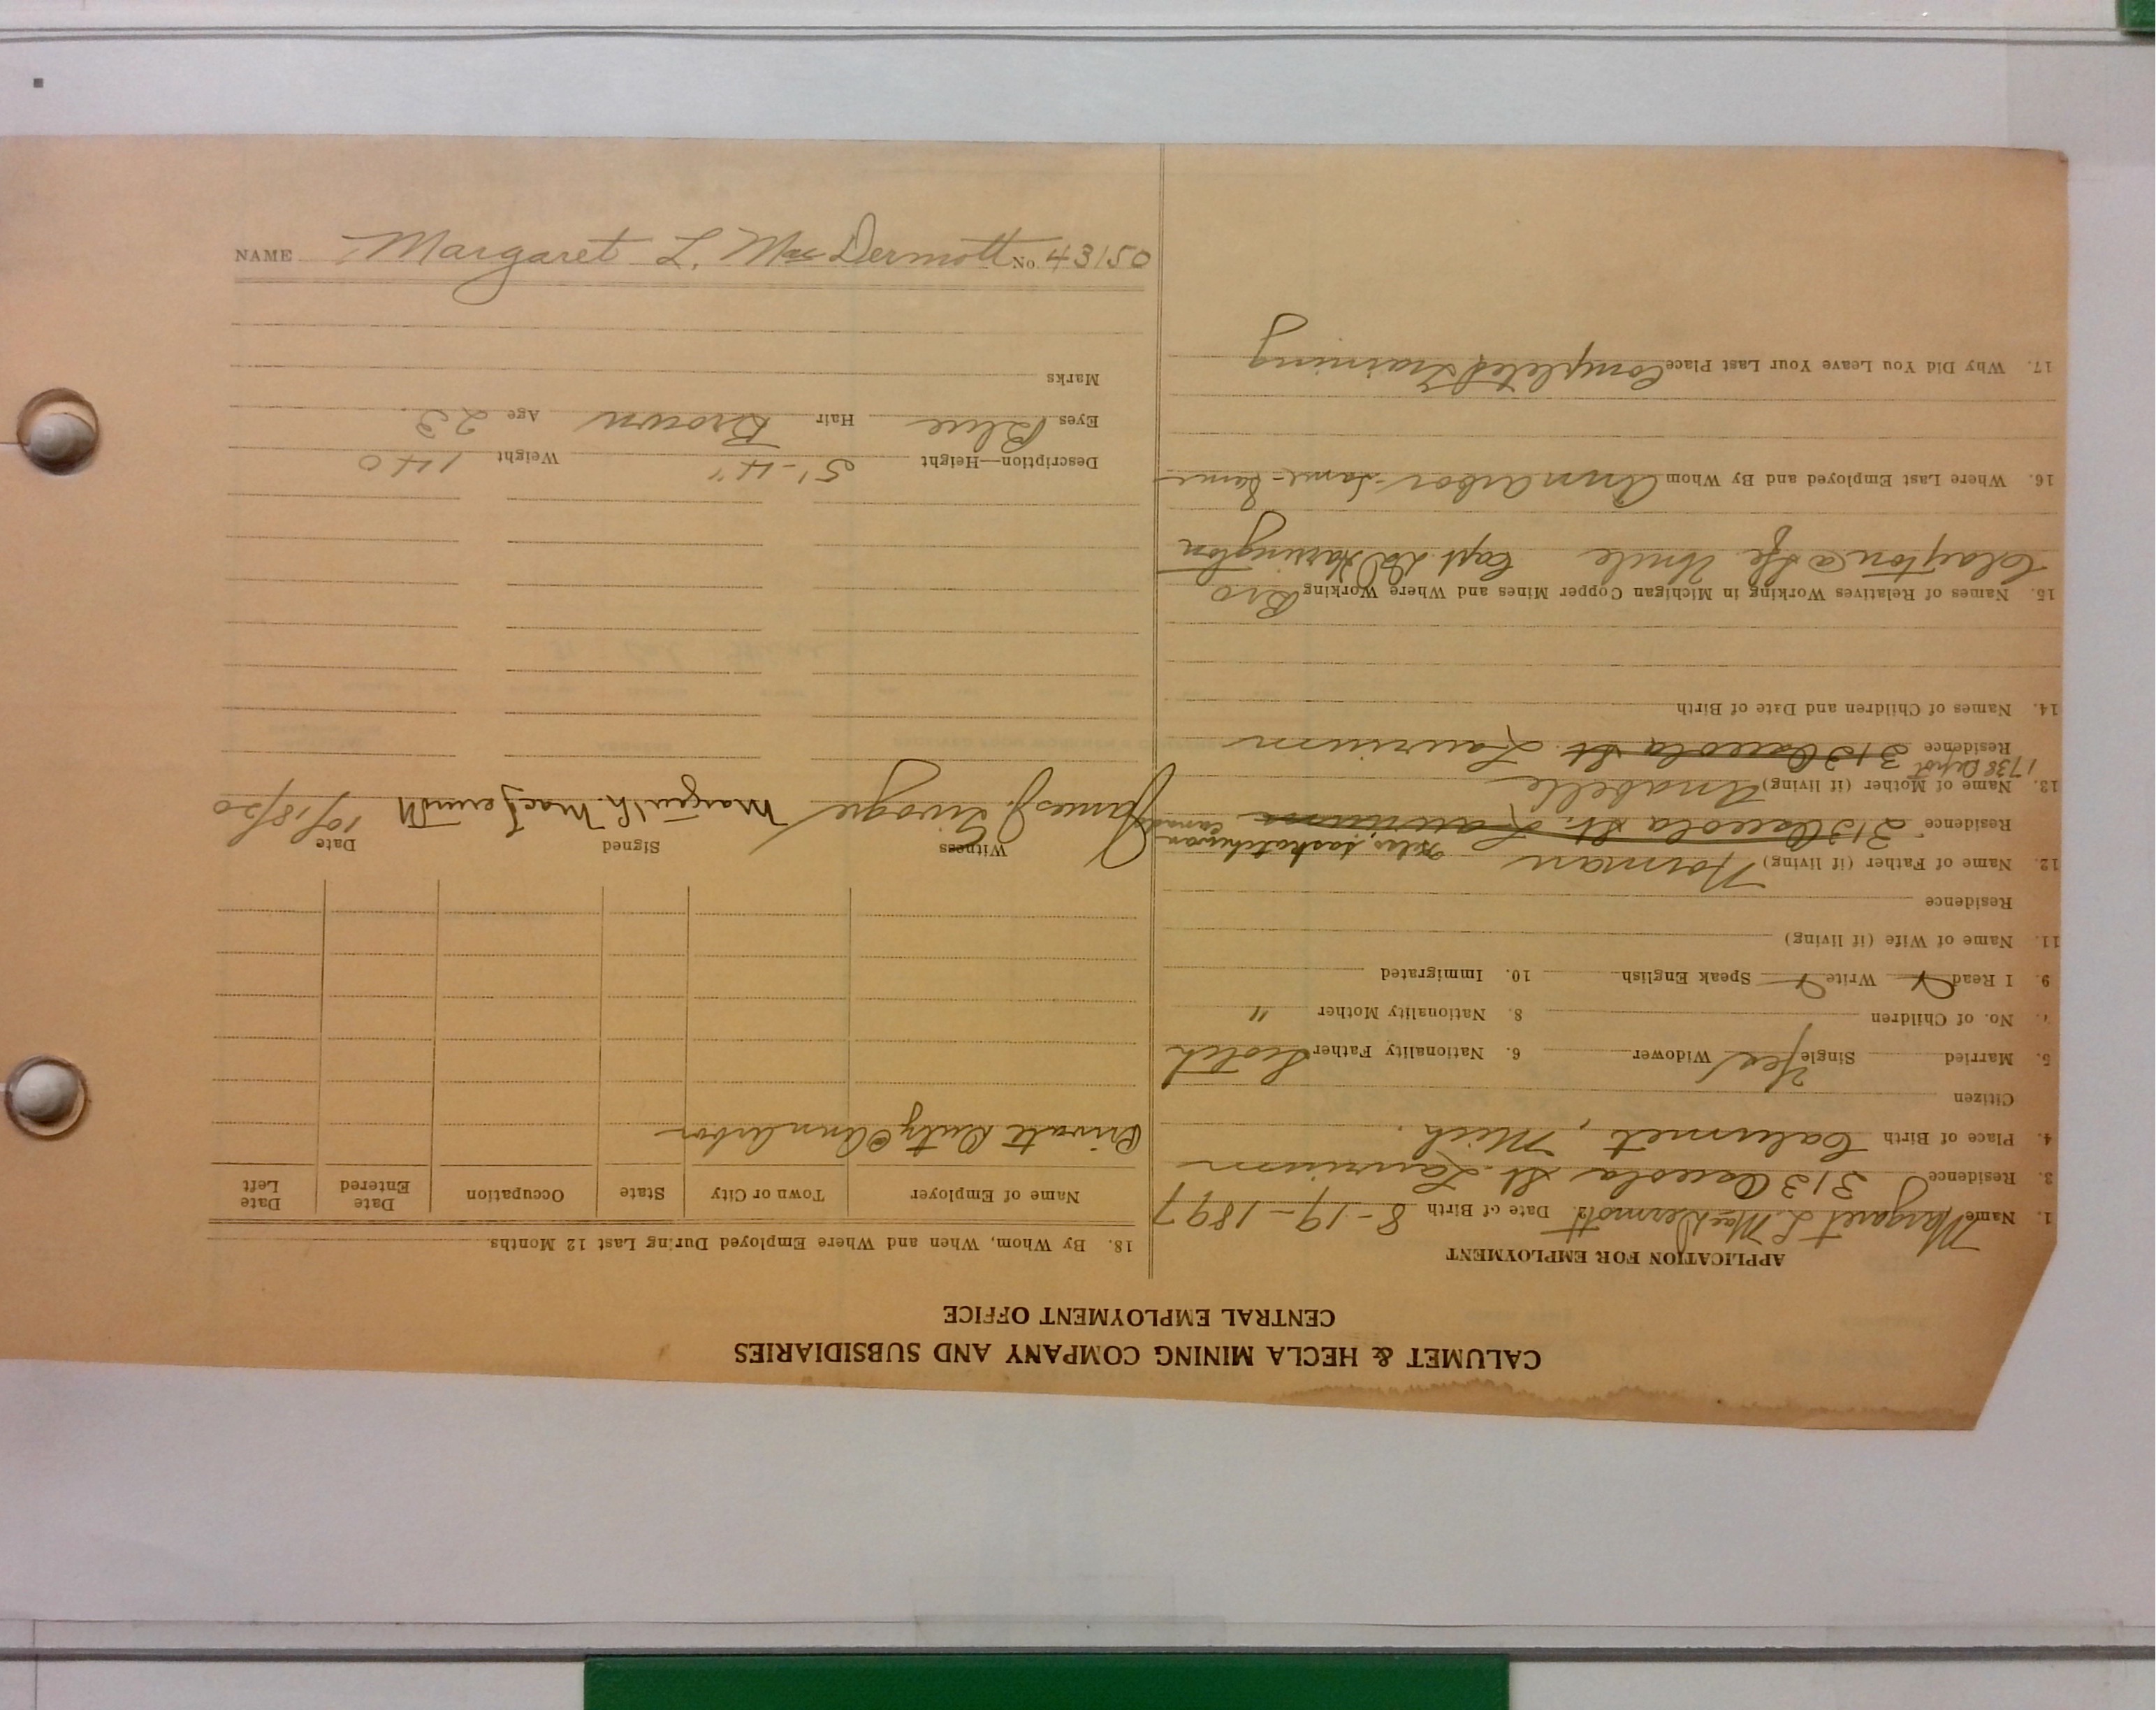 CALUMET & HECLA MINING COMPANY AND SUBSIDIARIES
CENTRAL EMPLOYMENT OFFICE
APPLICATION FOR EMPLOYMENT
1. Name Margaret L. MacDermott 2. Date of Birth 8-19-1897
3. Residence 313 Osceola St. Laurium
4. Place of Birth Calumet, Mich.
Citizen
5. Married Single Yes Widower 6. Nationality Father Scotch
7. No. of Children 8. Nationality Mother "
9. I Read Write Speak English 10. Immigrated
11. Name of Wife (if living)
Residence
12. Name of Father (if living) Norman Saskatchewan
Residence 313 Osceola St. Laurium Canada
13. Name of Mother (if living) Anabelle
1738 Depot
Residence 313 Osceola St. Laurium
14. Names of Children and Date of Birth
15. Names of Relatives Working in Michigan Copper Mines and Where Working Bro
Clayton @ Uncle Capt Harrington
16. Where Last Employed and By Whom Ann Arbor - Same - Same
17. Why Did You Leave Your Last Place Completed Training
18. By Whom, When and Where Employed During Last 12 Months
Name of Employer Town or City State Occupation Date Entered Date Left
Private Duty @ Ann Arbor
Witness Signed Date
James J. Margaret L. MacDermott 10/18/20
Description—Height 5'-4" Weight 140
Eyes Blue Hair Brown Age 23
Marks
NAME Margaret L. MacDermott No. 43150